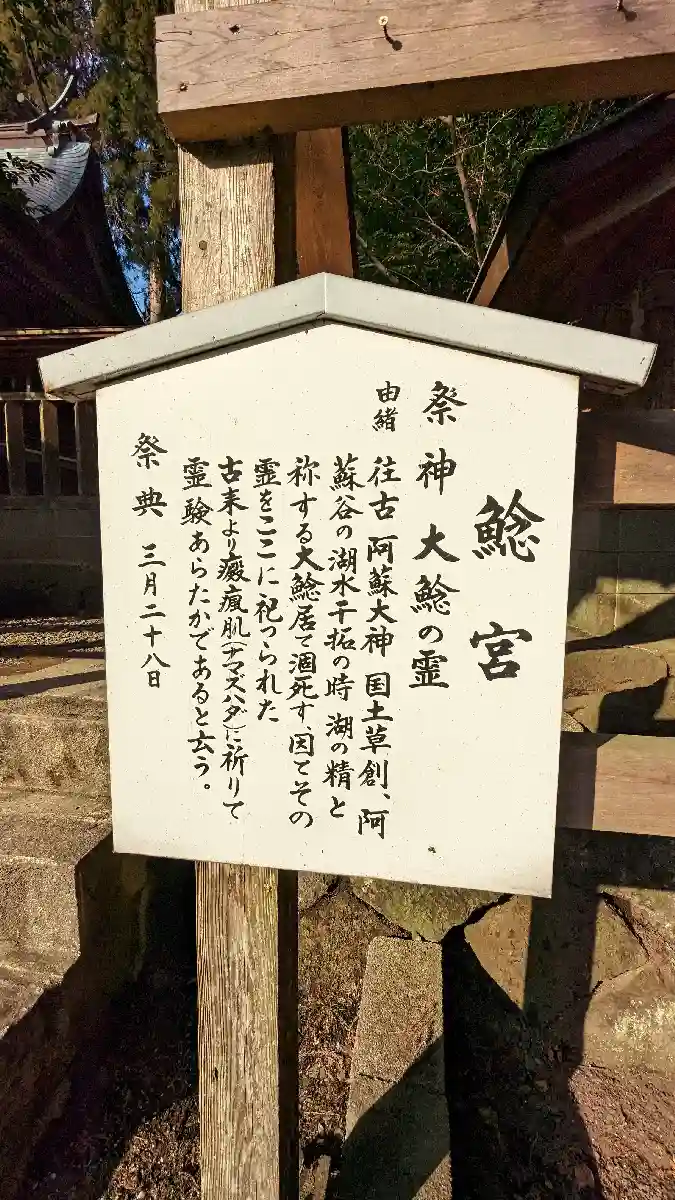 鯰宮
祭神 大鯰の霊
由緒
往古 阿蘇大神 国土草創、阿
蘇谷の湖水干拓の時 湖の精と
称する大鯰居て涸死す、因てその
霊をここに祀つられた
古来より癜瘋肌(ナマズハダ)に祈りて
霊験あらたかであると云う。
祭典 三月二十八日